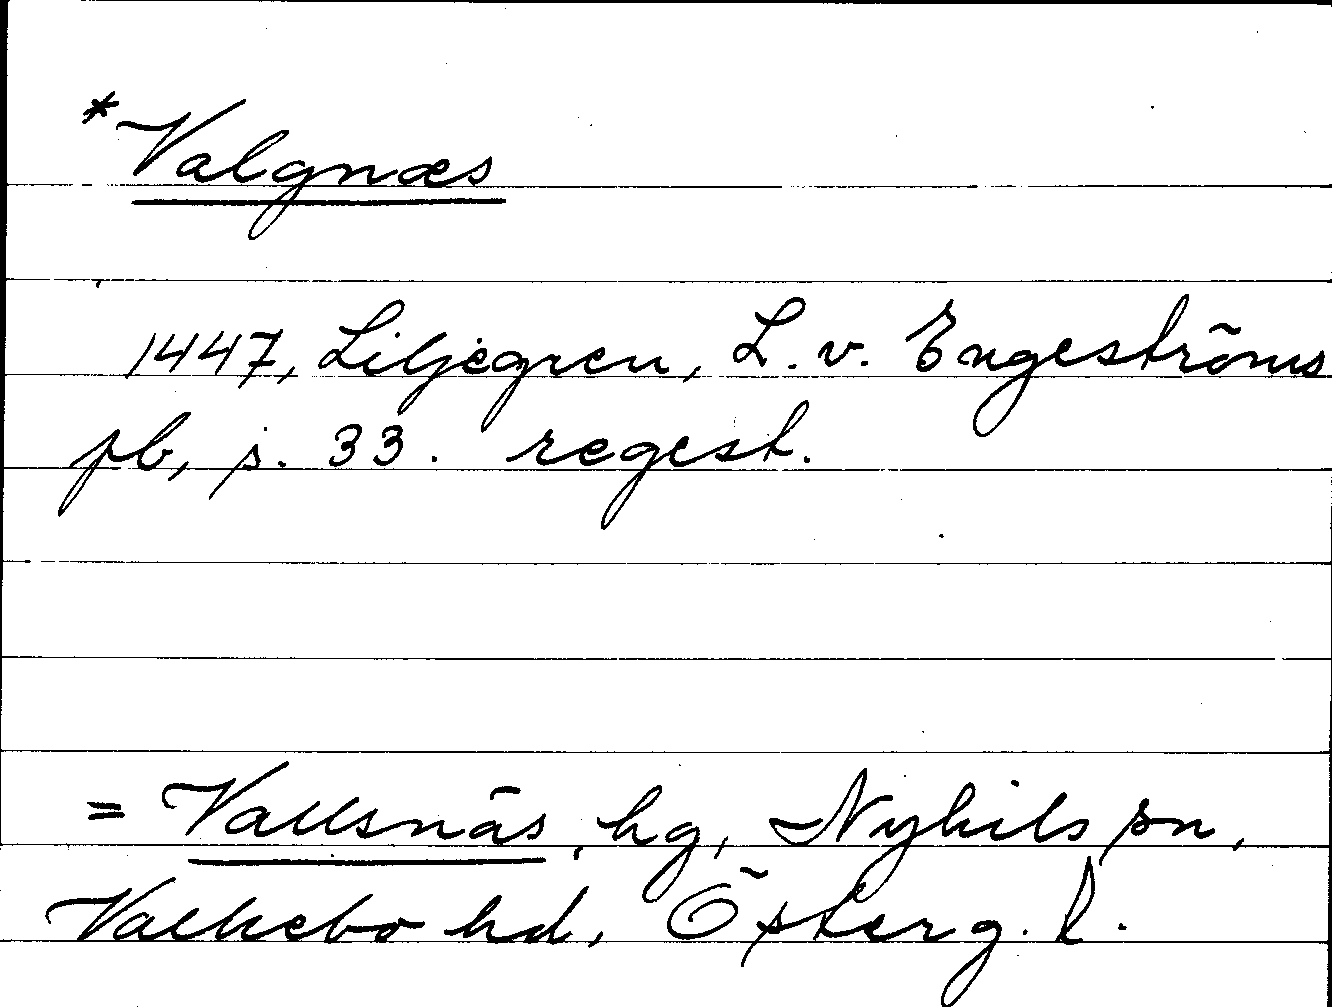 * Valgnæs
1447, Liljegren, L. v. Engeströms
pb, s. 33. regest.
= Vallsnäs, hg, Nykils sn,
Valkebo hd, Österg. l.